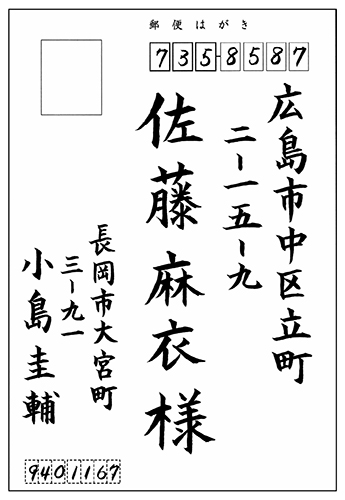 郵便はがき
735-8587
広島市中区立町
二ー一五ー九
佐藤麻衣様
長岡市大宮町
三ー九一
小島圭輔
9401167